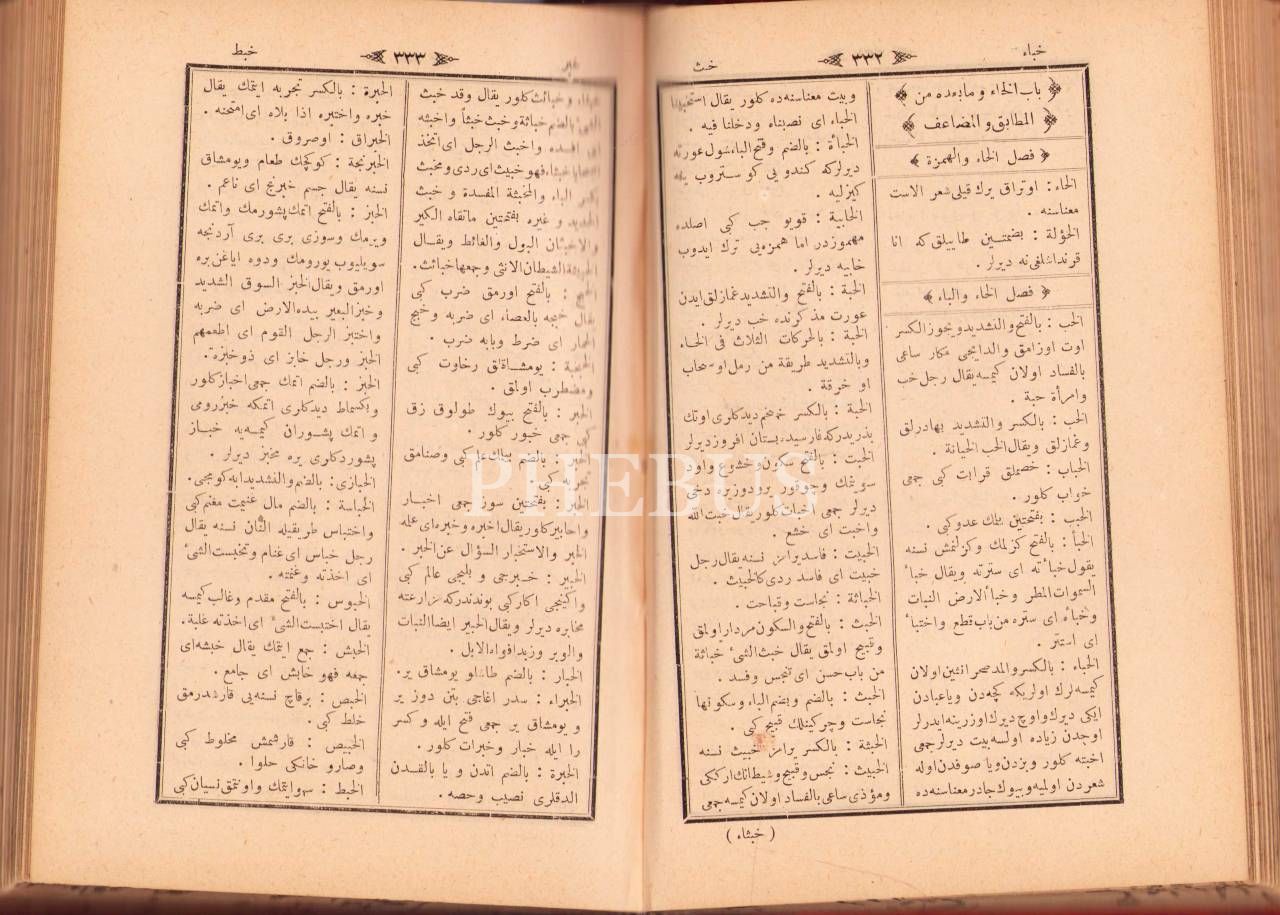 خباء
٣٣٢
خث
باب الخاء وما بعده من
المطابق والمضاعف
فصل الخاء والهمزة
الخاء : اوتراق يرك قيلى شعر الاست
معناسنه .
الخؤلة : بضمتين طاييلق كه انا
قرنداشلغى نه ديرلر .
فصل الخاء والباء
الخب : بالفتح والتشديد ويجوز الكسر
اوت اوزامق والدايجى مكار ساعى
بالفساد اولان كيمسه يقال رجل خب
وامرأة خبة .
الخب : بالكسر والتشديد بهادرلق
وغمازلق ويقال الخب الخيانة .
الخباب : خصملق قرابات كى جمعى
خواب كلور .
الخبب : بفتحتين يلك عدو كى .
الخبأ : بالفتح كزلمك وكزلنمش نسنه
يقول خبأته اى سترته ويقال خبأ
السموات المطر وخبأ الارض النبات
وخبأه اى ستره من باب قطع واختبأ
اى استتر .
الخباء : بالكسر والمد صحرا نشين اولان
كيمسه لرك اولريكه كچه دن وياعبادن
ايكى ديرك واوچ ديرك اوزرينه ايدرلر
اوجدن زياده اولسه بيت ديرلر جمعى
اخبئه كلور وبزدن ويا صوفدن اوله
شعردن اولميه وبيوك جادر معناسنه ده
وبيت معناسنه ده كلور يقال استخبينا
الخباء اى نصبناه ودخلنا فيه .
الخبأة : بالضم وفتح الباء شول عورته
ديرلركه كندويى كوستروب يينه
كيزليه .
الخابية : قويو جب كى اصلده
مهموزدر اما همزه يى ترك ايدوب
خابيه ديرلر .
الخبة : بالفتح والتشديد غمازلق ايدن
عورت مذكرنده خب ديرلر .
الخبة : بالحركات الثلاث فى الخاء
وبالتشديد طريقة من رمل او سحاب
او خرقة .
الخبة : بالكسر خمخم ديدكلرى اوتك
بذريدركه فارسيده بستان افروز ديرلر
الخبت : بالفتح سكون وخشوع واود
ديرلر جمعى اخبات كلور يقال خبت الله
واخبت اى خشع .
الخبيت : فاسد يراز نسنه يقال رجل
خبيت اى فاسد ردى كالخبيث .
الخباثة : نجاست وقباحت .
الخبث : بالفتح والسكون مردار اولمق
وقبيح اولمق يقال خبث الشئ خباثة
من باب حسن اى تنجس وفسد .
الخبث : بالضم وبضم الباء وسكونها
نجاست وچركينلك قبيح كى .
الخبثة : بالكسر يراز خبيث نسنه
الخبيث : نجس وقبيح وشيطانك اركى
ومؤذى ساعى بالفساد اولان كيمسه جمعى
( خبثاء )
خبر
٣٣٣
خبط
خبثاء وخبائث كلور يقال وقد خبث
الشئ بالضم خباثة وخبث خبثا واخبثه
اى افسده واخبث الرجل اى اتخذ
اصحابا خبثاء فهو خبيث اى ردى ومخبث
بكسر الباء والمخبثة المفسدة وخبث
الحديد وغيره بفتحتين ماتقاه الكير
والاخبثان البول والغائط ويقال
الخبيثة الشيطان الانثى وجمعها خبائث .
الخبج : بالفتح اورمق ضرب كى
يقال خبجه بالعصاء اى ضربه وخبج
الحمار اى ضرط وبابه ضرب .
يومشاقلق رخاوت كى
ومضطرب اولمق .
الخبر : بالفتح بيوك طولوق زق
كى جمعى خبور كلور .
الخبر : بالضم بيلك علم كى وصنامق
تجربه كى .
الخبر : بفتحتين سوز جمعى اخبار
واخابير كلور يقال اخبره وخبره اى عله
الخبر والاستخبار السؤال عن الخبر .
الخبير : خبرجى و بليجى عالم كى
واكينجى اكار كى بوندندركه مزارعته
مخابره ديرلر ويقال الخبير ايضا النبات
والوبر وزبد افواه الابل .
الخبار : بالضم طاشلو يومشاق ير .
الخبراء : سدر اغاجى بتن دوز ير
و يومشاق ير جمعى فتح ايله و كسر
را ايله خبار وخبرات كلور .
الخبرة : بالضم اتدن و يا بالقسدن
الدقلرى نصيب وحصه .
الخبرة : بالكسر تجربه ايتمك يقال
خبره واختبره اذا بلاه اى امتحنه .
الخبراق : اوصروق .
الخبرنجة : كوكچك طعام ويومشاق
نسنه يقال جسم خبرنج اى ناعم .
الخبز : بالفتح اتمك پشورمك واتمك
ويرمك وسوزى برى برى آردنجه
سويليوب يورومك ودوه اياغن يره
اورمق ويقال الخبز السوق الشديد
وخبز البعير بيده الارض اى ضربه
واختبز الرجل القوم اى اطعمهم
الخبز ورجل خابز اى ذو خبزة .
الخبز : بالضم اتمك جمعى اخباز كلور
وبكسماط ديدكلرى اتمكه خبزرومى
و اتمك پشوران كيمسه يه خباز
پشوردكلرى يره مخبز ديرلر .
الخبازى : بالضم والتشديد ابه كومجى .
الخباسة : بالضم مال غنيمت مغنم كى
واختباس طريقيله النان نسنه يقال
رجل خباس اى غنام وتخبست الشئ
اى اخذته وغنمته .
الخبوس : بالفتح مقدم وغالب كيمسه
يقال اختبست الشئ اى اخذته غلبة .
الخبش : جمع ايتمك يقال خبشه اى
جمعه فهو خابش اى جامع .
الخبص : برقاچ نسنه يى قارشدرمق
خلط كى .
الخبيص : قارشمش مخلوط كى
وصارو خانكى حلوا .
الخبط : سهو ايتمك واونتمق نسيان كى